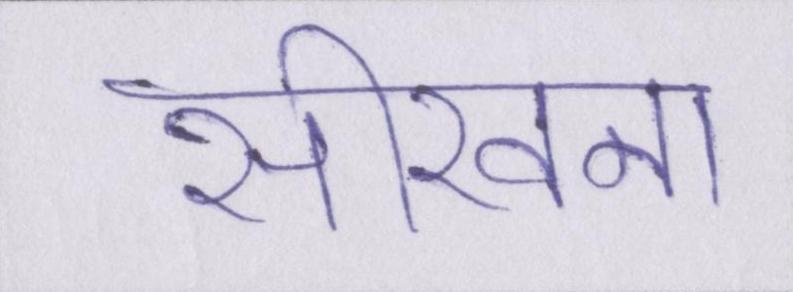 सीखना